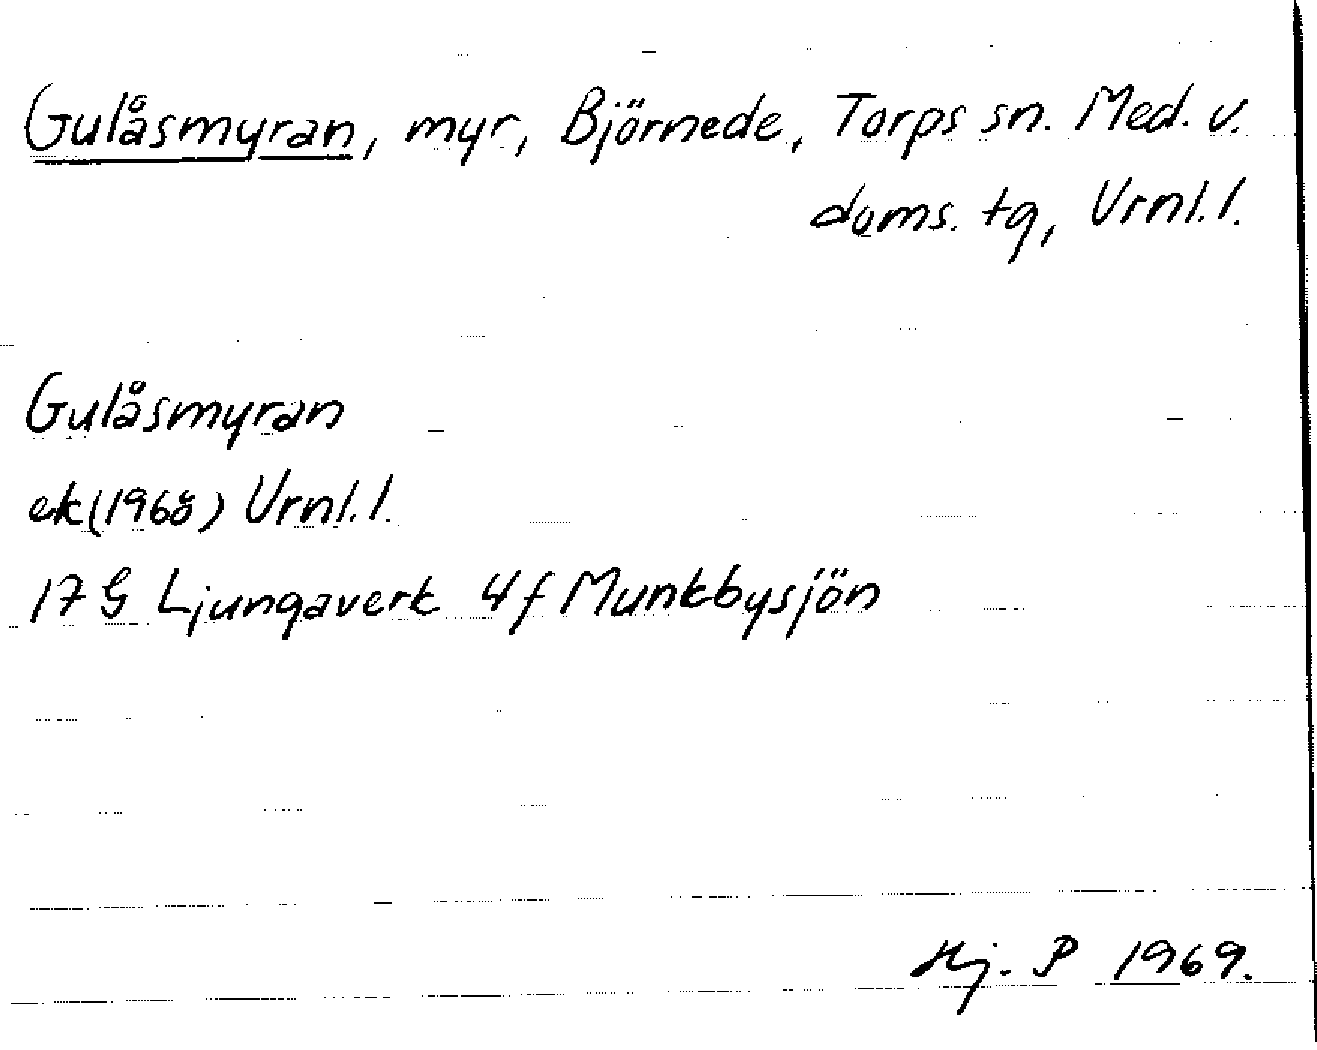 Gulåsmyran, myr, Björnede, Torps sn. Med. v.
doms. tg, Vrnl. l.
Gulåsmyran
ek (1968) Vrnl. l.
17 G Ljungaverk 4f Munkbysjön
Hj. P 1969.